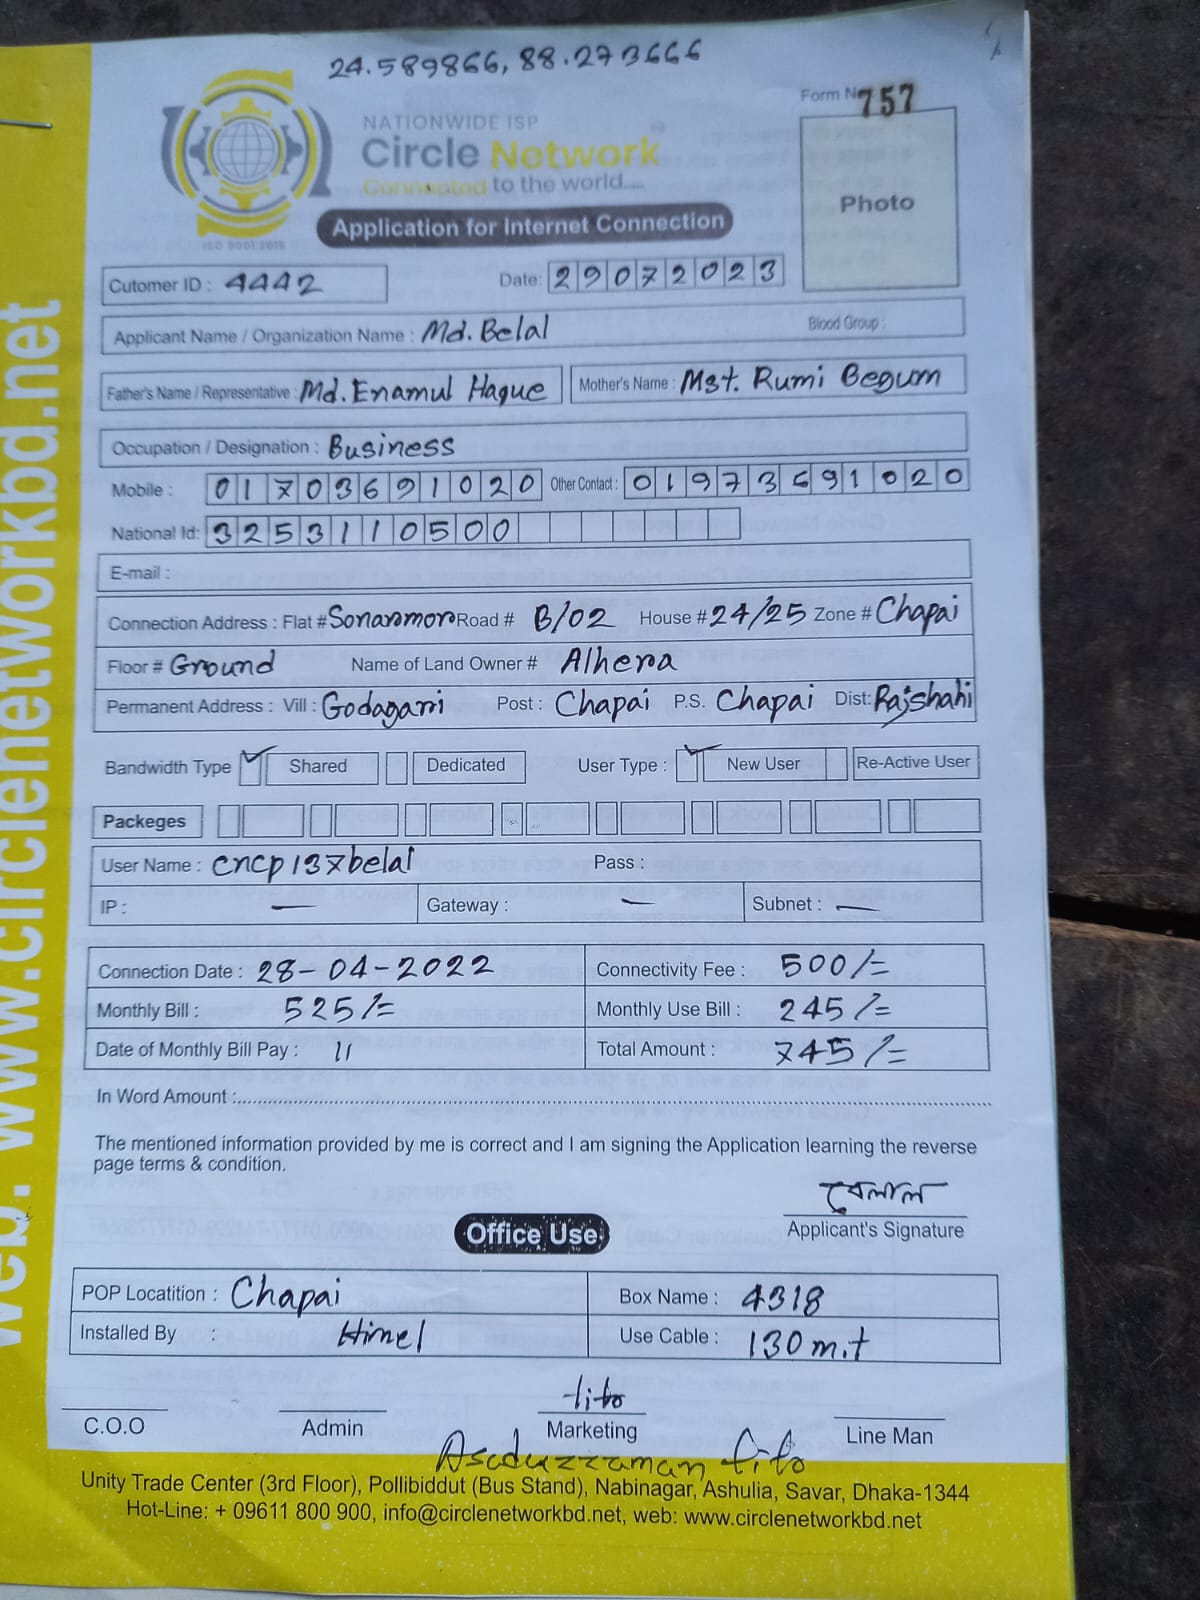 24.589866, 88.273666
Form No 757
NATIONWIDE ISP
Circle Network
Connected to the world....
ISO 9001:2015
Photo
Application for Internet Connection
Cutomer ID : 4442 Date: 29072023
Applicant Name / Organization Name : Md. Belal Blood Group :
Father's Name / Representative : Md. Enamul Haque Mother's Name : Mst. Rumi Begum
Occupation / Designation : Business
Mobile : 01703691020 Other Contact : 01973691020
National Id: 3253110500
E-mail :
Connection Address : Flat # Sonarmor Road # B/02 House # 24/25 Zone # Chapai
Floor # Ground Name of Land Owner # Alhera
Permanent Address : Vill : Godagari Post : Chapai P.S. Chapai Dist: Rajshahi
Bandwidth Type ✓ Shared Dedicated User Type : ✓ New User Re-Active User
Packeges
User Name : cncp137belal Pass :
IP : — Gateway : — Subnet : —
Connection Date : 28-04-2022 Connectivity Fee : 500/=
Monthly Bill : 525/= Monthly Use Bill : 245/=
Date of Monthly Bill Pay : 11 Total Amount : 745/=
In Word Amount :
The mentioned information provided by me is correct and I am signing the Application learning the reverse
page terms & condition.
বেলাল
Applicant's Signature
Office Use
POP Locatition : Chapai Box Name : 4318
Installed By : Himel Use Cable : 130 m.t
tito
C.O.O Admin Marketing Line Man
Asaduzzaman tito
Unity Trade Center (3rd Floor), Pollibiddut (Bus Stand), Nabinagar, Ashulia, Savar, Dhaka-1344
Hot-Line: + 09611 800 900, info@circlenetworkbd.net, web: www.circlenetworkbd.net
web: www.circlenetworkbd.net